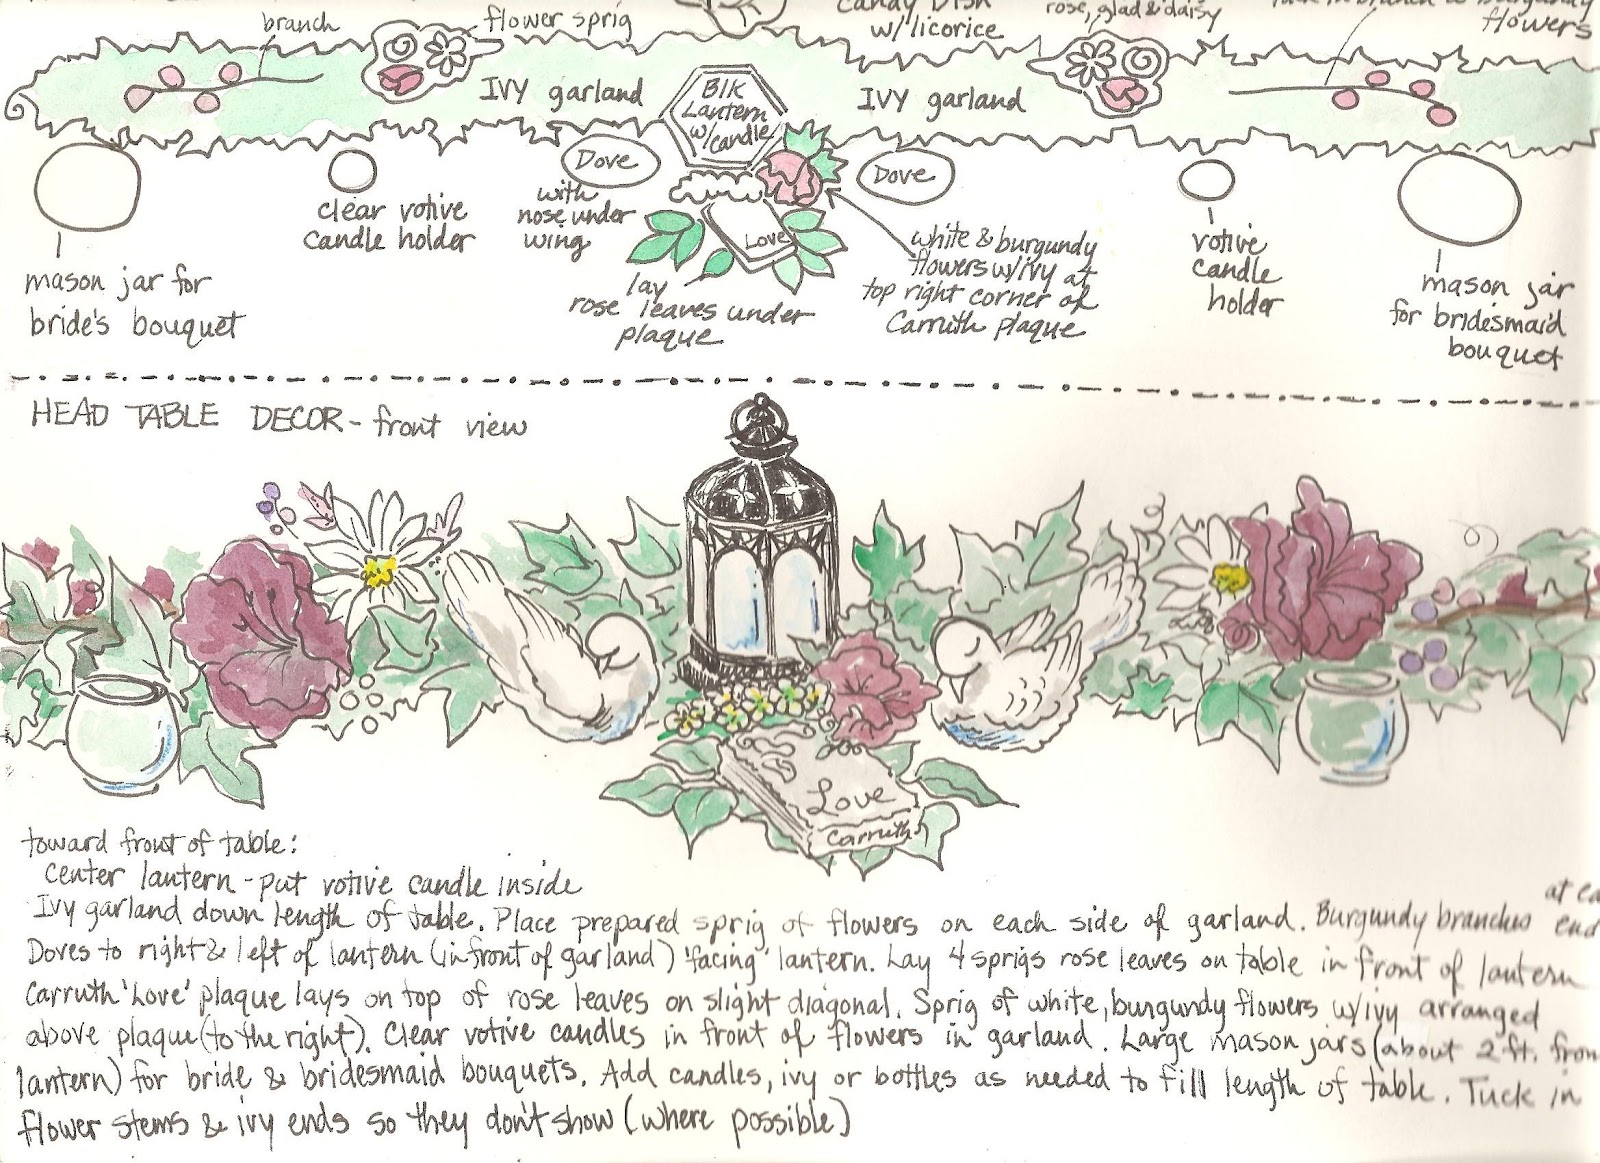 branch
flower sprig
Candy Dish
w/licorice
rose, glad & daisy
flowers
IVY garland
Blk
Lantern
w/candle
IVY garland
Dove
Dove
clear votive
candle holder
with
nose under
wing
Love
mason jar for
bride's bouquet
lay
rose leaves under
plaque
white & burgundy
flowers w/ivy at
top right corner of
Carruth plaque
votive
candle
holder
mason jar
for bridesmaid
bouquet
HEAD TABLE DECOR - front view
Love
Carruth
toward front of table:
center lantern - put votive candle inside
Ivy garland down length of table. Place prepared sprig of flowers on each side of garland. Burgundy branches at ea end
Doves to right & left of lantern (in front of garland) 'facing' lantern. Lay 4 sprigs rose leaves on table in front of lantern
Carruth 'Love' plaque lays on top of rose leaves on slight diagonal. Sprig of white, burgundy flowers w/ivy arranged
above plaque (to the right). Clear votive candles in front of flowers in garland. Large mason jars (about 2 ft. from
lantern) for bride & bridesmaid bouquets. Add candles, ivy or bottles as needed to fill length of table. Tuck in
flower stems & ivy ends so they don't show (where possible)